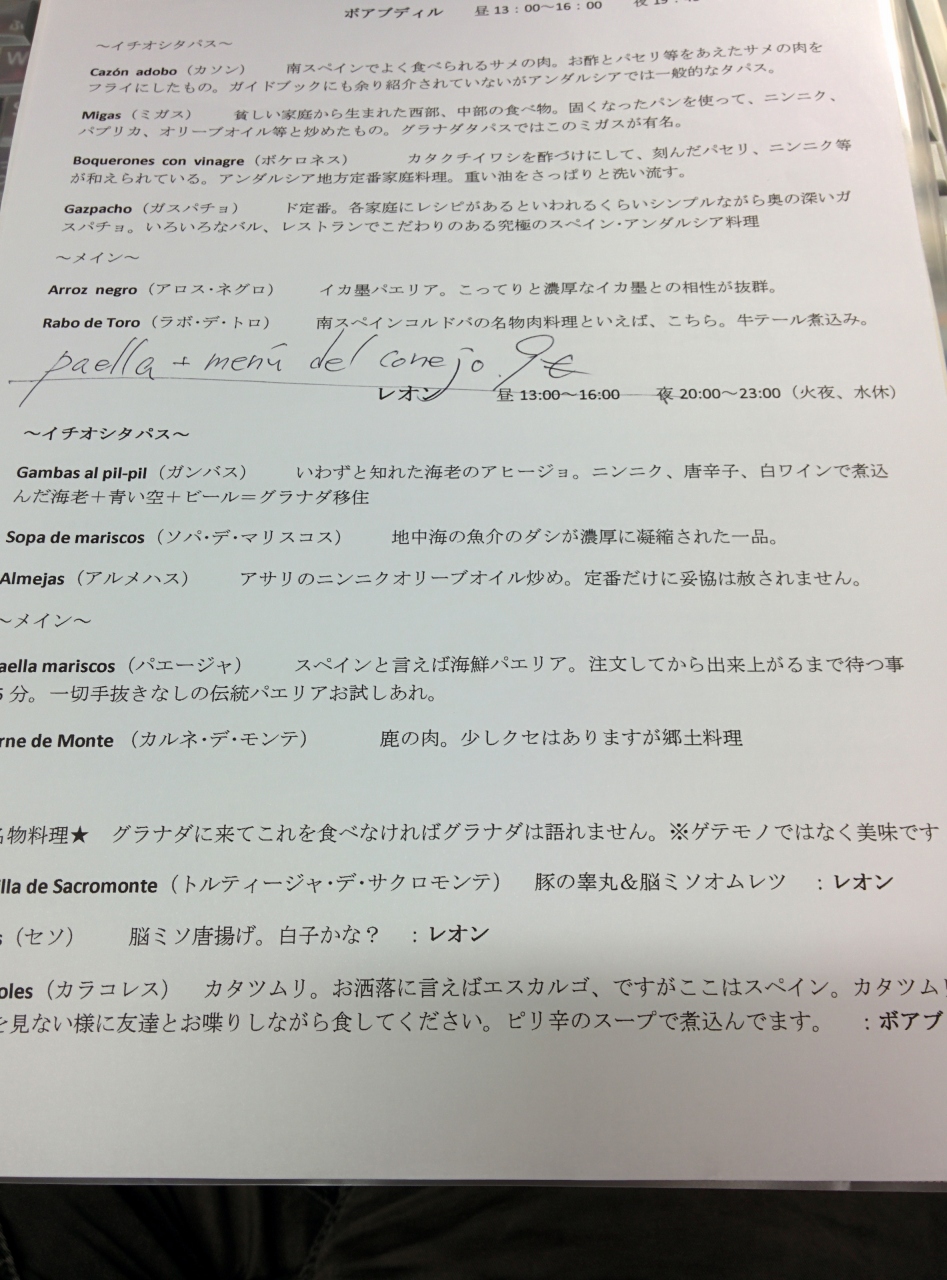 ボアブディル 昼 13：00～16：00 夜
～イチオシタパス～
Cazón adobo（カソン） 南スペインでよく食べられるサメの肉。お酢とパセリ等をあえたサメの肉を
フライにしたもの。ガイドブックにも余り紹介されていないがアンダルシアでは一般的なタパス。
Migas（ミガス） 貧しい家庭から生まれた西部、中部の食べ物。固くなったパンを使って、ニンニク、
パプリカ、オリーブオイル等と炒めたもの。グラナダタパスではこのミガスが有名。
Boquerones con vinagre（ボケロネス） カタクチイワシを酢づけにして、刻んだパセリ、ニンニク等
が和えられている。アンダルシア地方定番家庭料理。重い油をさっぱりと洗い流す。
Gazpacho（ガスパチョ） ド定番。各家庭にレシピがあるといわれるくらいシンプルながら奥の深いガ
スパチョ。いろいろなバル、レストランでこだわりのある究極のスペイン･アンダルシア料理
～メイン～
Arroz negro（アロス･ネグロ） イカ墨パエリア。こってりと濃厚なイカ墨との相性が抜群。
Rabo de Toro（ラボ･デ･トロ） 南スペインコルドバの名物肉料理といえば、こちら。牛テール煮込み。
paella + menú del conejo. 9€
レオン 昼 13:00～16:00 夜 20:00～23:00（火夜、水休）
～イチオシタパス～
Gambas al pil-pil（ガンバス） いわずと知れた海老のアヒージョ。ニンニク、唐辛子、白ワインで煮込
んだ海老＋青い空＋ビール＝グラナダ移住
Sopa de mariscos（ソパ･デ･マリスコス） 地中海の魚介のダシが濃厚に凝縮された一品。
Almejas（アルメハス） アサリのニンニクオリーブオイル炒め。定番だけに妥協は赦されません。
～メイン～
aella mariscos（パエージャ） スペインと言えば海鮮パエリア。注文してから出来上がるまで待つ事
5 分。一切手抜きなしの伝統パエリアお試しあれ。
rne de Monte （カルネ･デ･モンテ） 鹿の肉。少しクセはありますが郷土料理
名物料理★ グラナダに来てこれを食べなければグラナダは語れません。※ゲテモノではなく美味です
illa de Sacromonte（トルティージャ･デ･サクロモンテ） 豚の睾丸＆脳ミソオムレツ ：レオン
s（セソ） 脳ミソ唐揚げ。白子かな？ ：レオン
oles（カラコレス） カタツムリ。お洒落に言えばエスカルゴ、ですがここはスペイン。カタツムリ
を見ない様に友達とお喋りしながら食してください。ピリ辛のスープで煮込んでます。 ：ボアブ